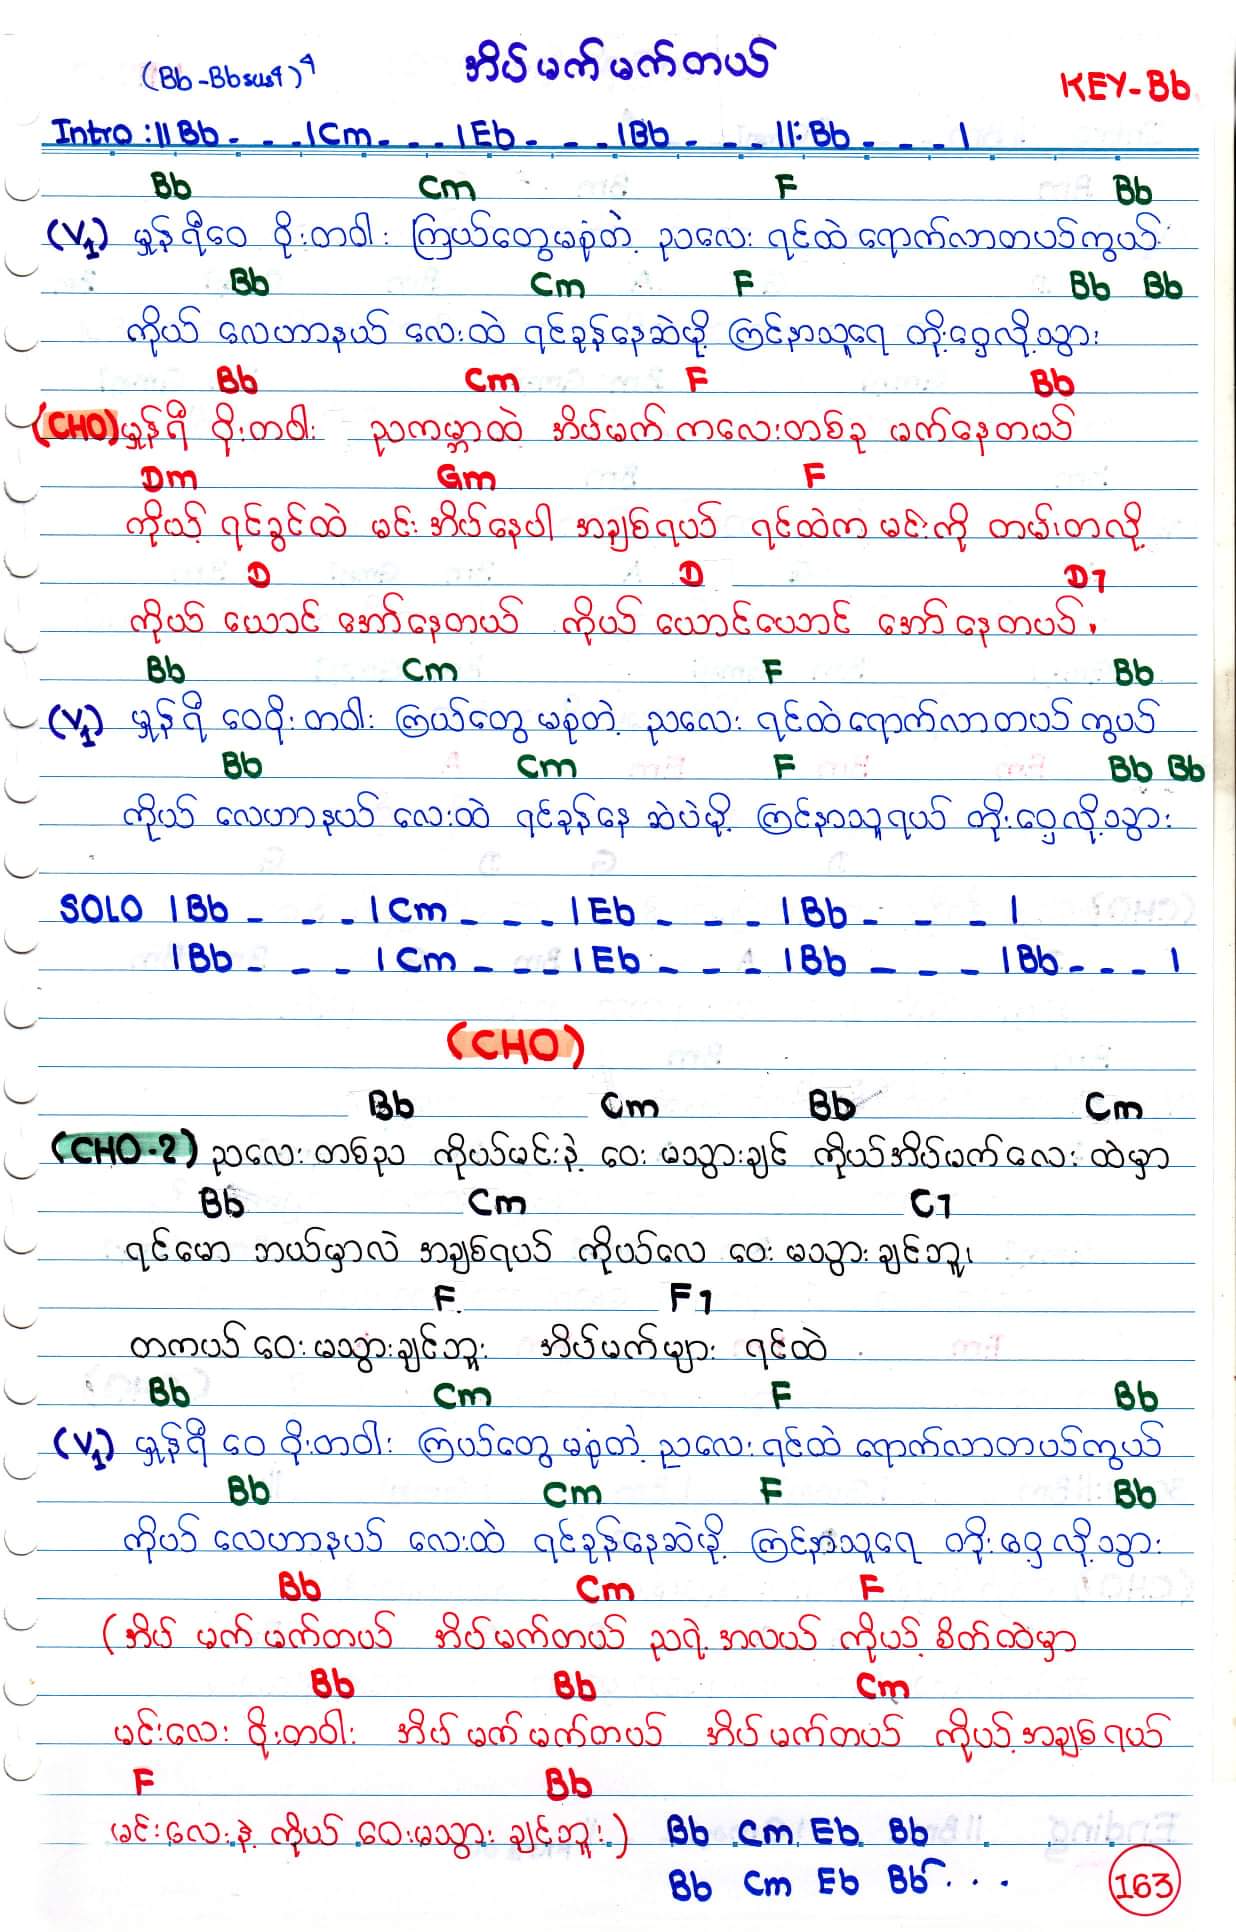 အိပ်မက်မက်တယ်
(Bb-Bbsus4)4
KEY-Bb
Intro :||Bb - - - |Cm - - - |Eb - - - |Bb - - - ||:Bb - - - |
Bb Cm F Bb
(V1) မှုန်ရီဝေ ဝိုးတဝါး ကြယ်တွေမစုံတဲ့ ညလေး ရင်ထဲရောက်လာတယ်ကွယ်
Bb Cm F Bb Bb
ကိုယ် လေဟာနယ် လေးထဲ ရင်ခုန်နေဆဲမို့ ကြင်နာသူရေ တိုးဝှေ့လို့သွား
Bb Cm F Bb
(CHO) မှုန်ရီ ဝိုးတဝါး ညကမ္ဘာထဲ အိပ်မက် ကလေးတစ်ခု မက်နေတယ်
Dm Gm F
ကိုယ့် ရင်ခွင်ထဲ မင်း အိပ်နေပါ အချစ်ရယ် ရင်ထဲက မင်းကို တမ်းတလို့
D D D7
ကိုယ် ယောင် အော်နေတယ် ကိုယ် ယောင်ယောင် အော်နေတယ်.
Bb Cm F Bb
(V1) မှုန်ရီ ဝေဝိုး တဝါး ကြယ်တွေ မစုံတဲ့ ညလေး ရင်ထဲရောက်လာတယ် ကွယ်
Bb Cm F Bb Bb
ကိုယ် လေဟာနယ် လေးထဲ ရင်ခုန်နေ ဆဲပဲမို့ ကြင်နာသူရယ် တိုးဝှေ့လို့သွား
SOLO |Bb - - - |Cm - - - |Eb - - - |Bb - - - |
|Bb - - - |Cm - - - |Eb - - - |Bb - - - |Bb - - - |
(CHO)
Bb Cm Bb Cm
(CHO-2) ညလေး တစ်ည ကိုယ်မင်းနဲ့ ဝေး မသွားချင် ကိုယ်အိပ်မက်လေး ထဲမှာ
Bb Cm C7
ရင်မော ဘယ်မှာလဲ အချစ်ရယ် ကိုယ်လေ ဝေး မသွား ချင်ဘူး
F F7
တကယ် ဝေး မသွားချင်ဘူး အိပ်မက်များ ရင်ထဲ
Bb Cm F Bb
(V1) မှုန်ရီ ဝေ ဝိုးတဝါး ကြယ်တွေ မစုံတဲ့ ညလေး ရင်ထဲ ရောက်လာတယ်ကွယ်
Bb Cm F Bb
ကိုယ် လေဟာနယ် လေးထဲ ရင်ခုန်နေဆဲမို့ ကြင်နာသူရေ တိုးဝှေ့လို့သွား
Bb Cm F
(အိပ် မက် မက်တယ် အိပ်မက်တယ် ညရဲ့ အလယ် ကိုယ့် စိတ်ထဲမှာ
Bb Bb Cm
မင်းလေး ဝိုးတဝါး အိပ် မက် မက်တယ် အိပ် မက်တယ် ကိုယ့် အချစ်ရယ်
F Bb
မင်းလေးနဲ့ ကိုယ် ဝေးမသွား ချင်ဘူး) Bb Cm Eb Bb
Bb Cm Eb Bb . . .
163